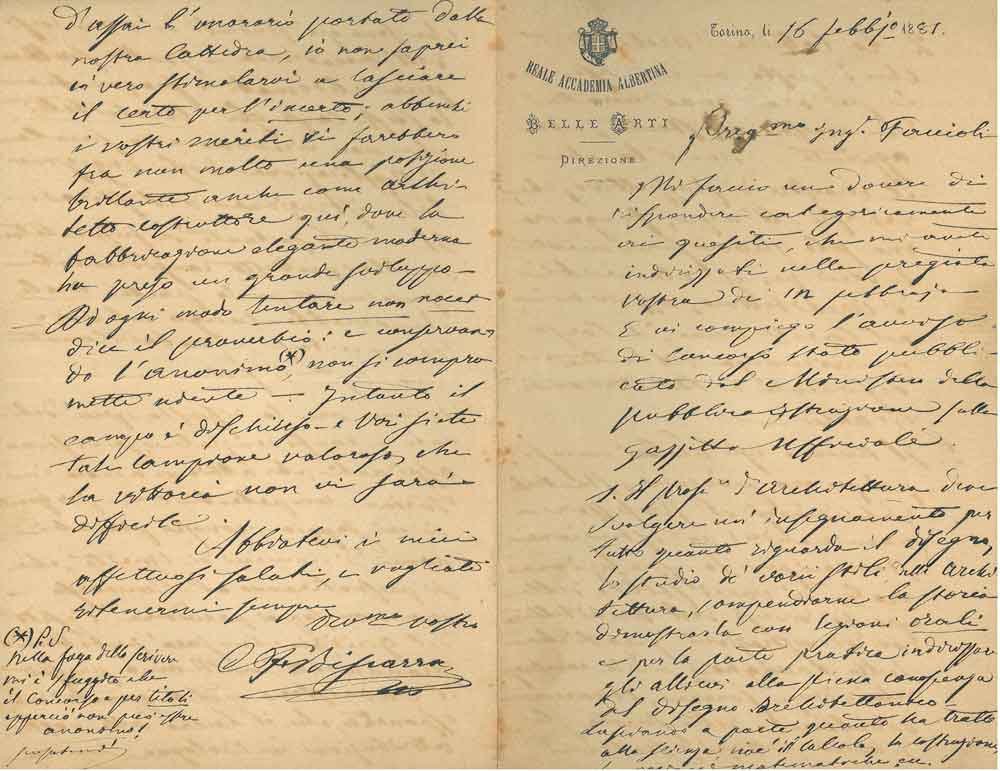 d'assai l'onorario portato dalla
nostra Cattedra, io non saprei
in vero stimolarvi a lasciare
il certo per l'incerto; abbenchè
i vostri meriti vi farebbero
fra non molto una posizione
brillante anche come archi-
tetto costruttore qui, dove la
fabbricazione elegante moderna
ha preso un grande sviluppo –
Ad ogni modo tentare non nocet
dice il proverbio: e conservan
do l'anonimo (*), non si compro
mette niente – Intanto il
campo è dischiuso – e Voi siete
tale campione valoroso, che
la vittoria non vi sarà
difficile
Abbiatevi i miei
affettuosi saluti, e vogliate
ritenermi sempre
Devmo vostro
C F Biscarra
(*) P.S.
Nella foga dello scrivere
mi è sfuggito che
il Concorso è per titoli
epperciò non può essere
anonimo!
REALE ACCADEMIA ALBERTINA
BELLE ARTI
DIREZIONE
Torino, li 16 febbjo 1881.
Pregmo ingr. Faccioli
Mi faccio un dovere di
rispondere categoricamente
ai quesiti, che mi avete
indirizzati nella pregiata
vostra di 12 febbrajo
E vi compiego l'avviso
di Concorso stato pubbli
cato dal Ministero della
pubblica istruzione sulla
Gazzetta Uffiziale.
1. Il profre d'Architettura deve
svolgere un'insegnamento per
tutto quanto riguarda il disegno,
lo studio de' varii stili dell'archi
tettura, compendiarne la storia
dimostrarla con lezioni orali
e per la parte pratica indirizzare
gli allievi alla piena conoscenza
del disegno Architettonico –
Lasciando a parte, quanto ha tratto
alla scienza cioè il calcolo, la costruzione,
matematiche ecc.